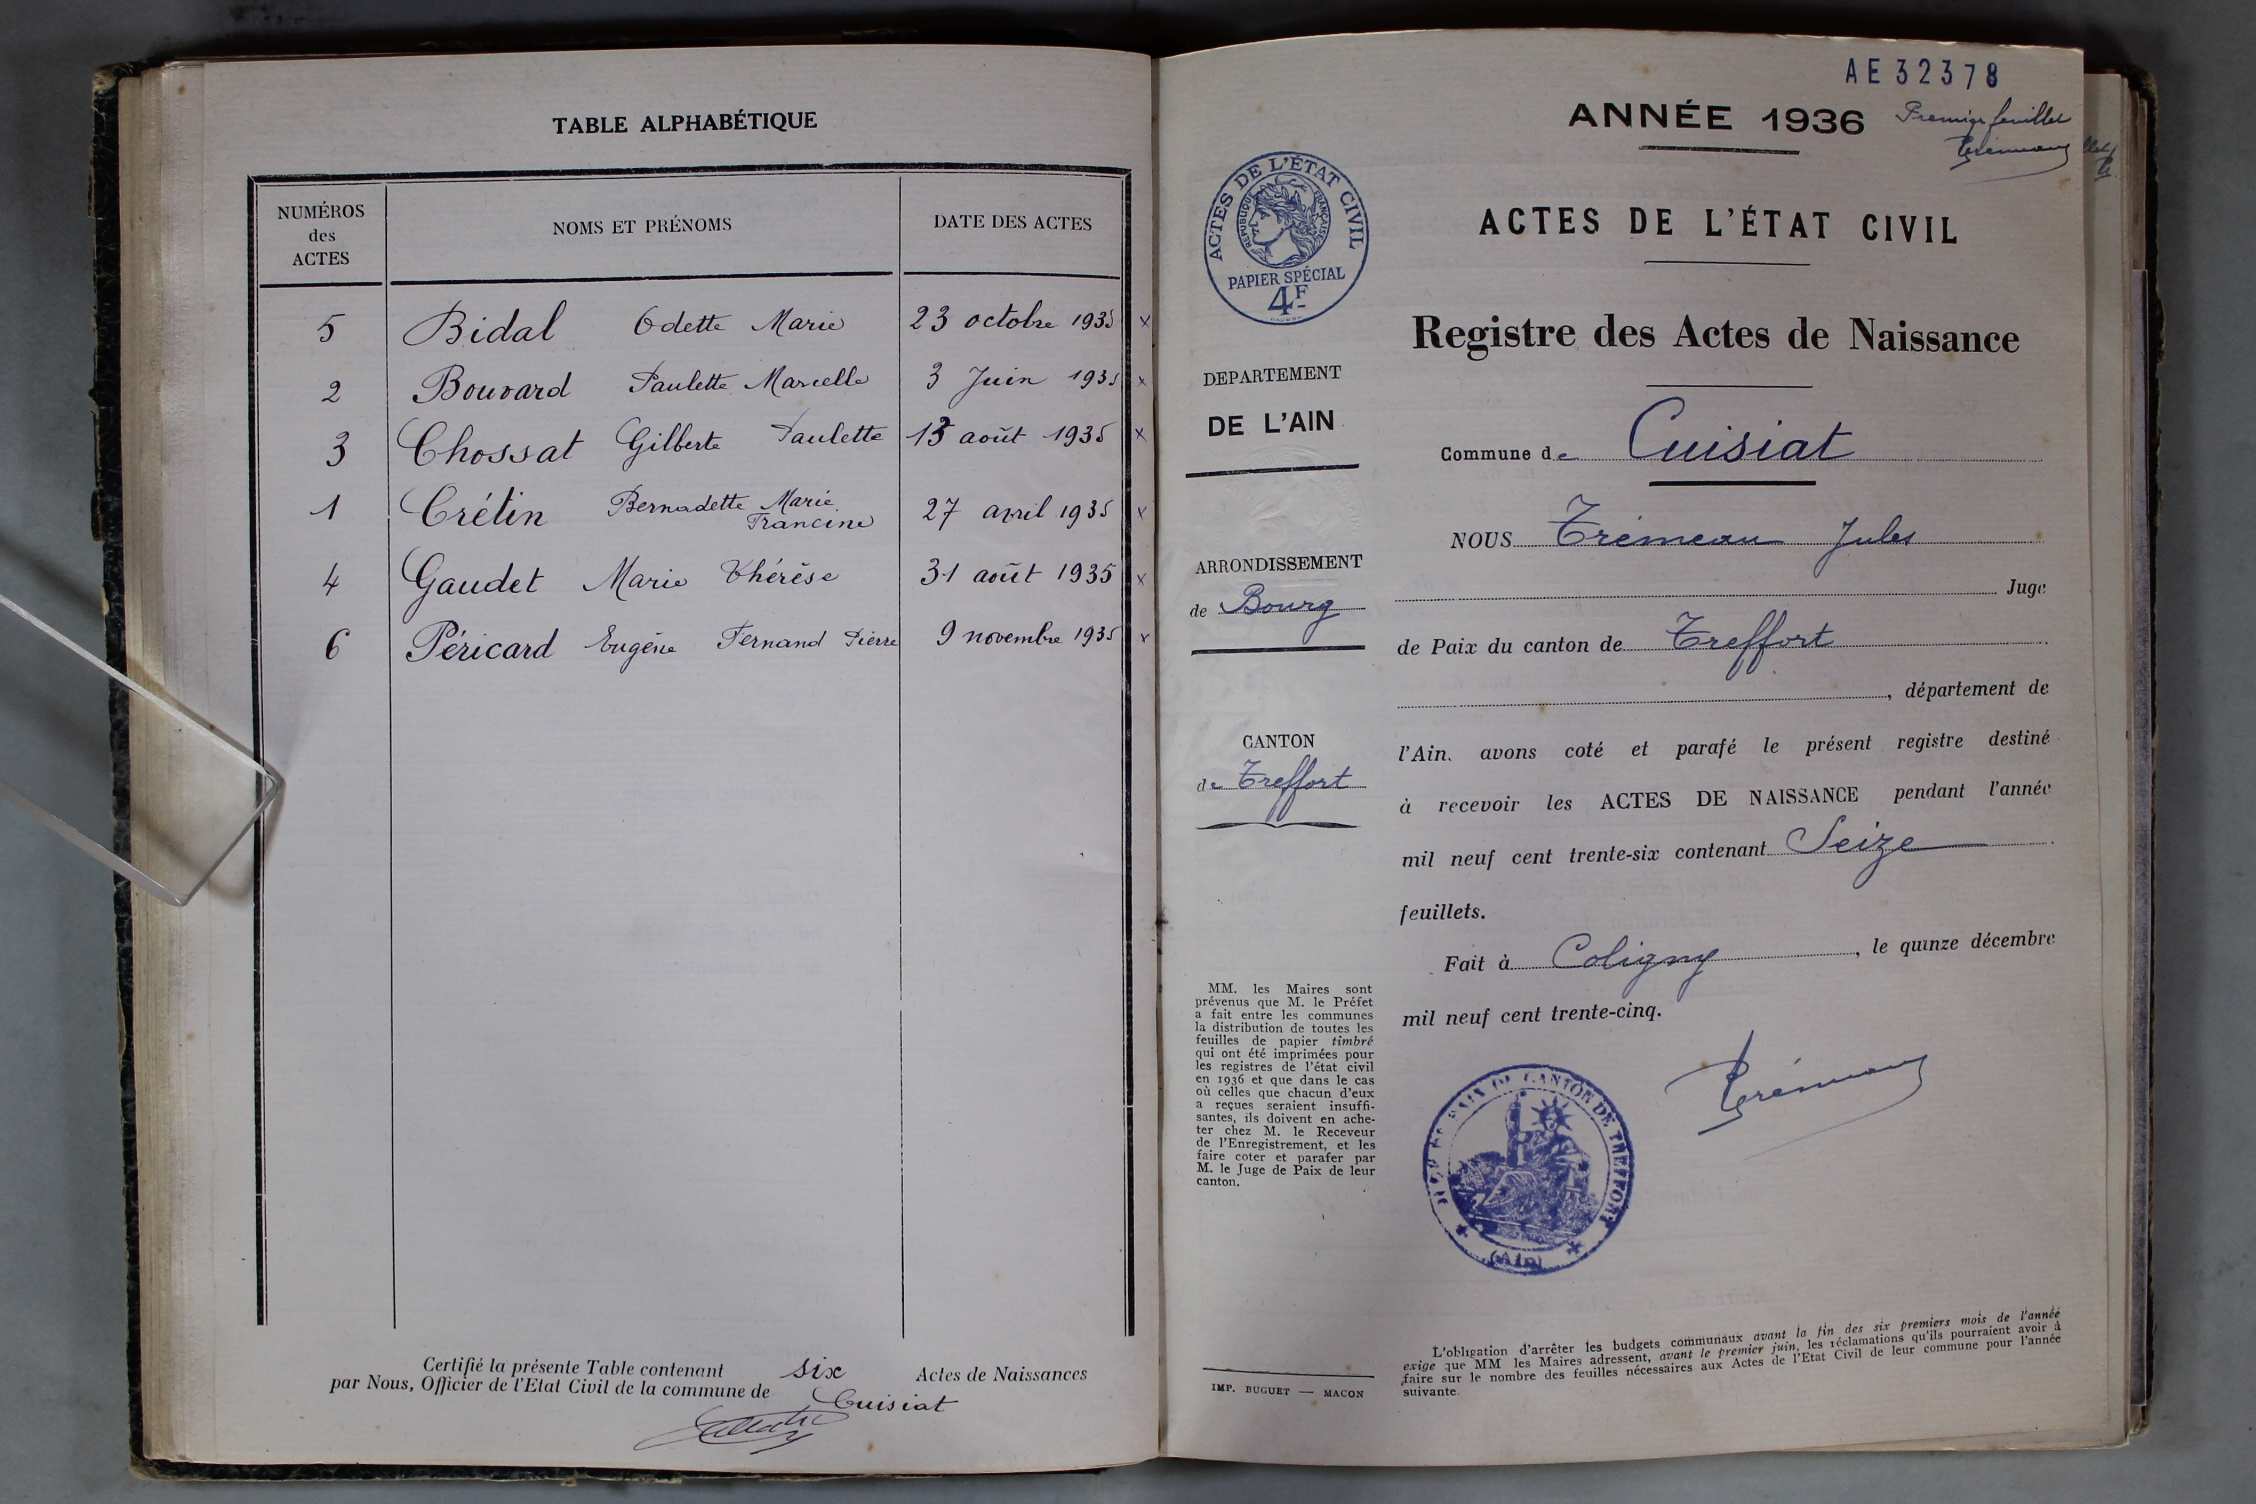 TABLE ALPHABÉTIQUE
NUMÉROS
des
ACTES
NOMS ET PRÉNOMS
DATE DES ACTES
5 Bidal Odette Marie 23 octobre 1935 x
2 Bouvard Paulette Marcelle 3 Juin 1935 x
3 Chossat Gilberte Paulette 13 août 1935 x
1 Crétin Bernadette Marie Francine 27 avril 1935 x
4 Gaudet Marie Thérèse 31 août 1935 x
6 Péricard Eugène Fernand Pierre 9 novembre 1935 x
Certifié la présente Table contenant six Actes de Naissances
par Nous, Officier de l'Etat Civil de la commune de Cuisiat
AE32378
ANNÉE 1936
Premier feuillet
ACTES DE L'ÉTAT CIVIL
RÉPUBLIQUE FRANÇAISE
PAPIER SPÉCIAL
4F
ACTES DE L'ÉTAT CIVIL
Registre des Actes de Naissance
DEPARTEMENT
DE L'AIN
ARRONDISSEMENT
de Bourg
CANTON
de Treffort
Commune de Cuisiat
NOUS Trémeau Jules
Juge
de Paix du canton de Treffort
, département de
l'Ain. avons coté et parafé le présent registre destiné
à recevoir les ACTES DE NAISSANCE pendant l'année
mil neuf cent trente-six contenant Seize
feuillets.
Fait à Coligny, le quinze décembre
mil neuf cent trente-cinq.
MM. les Maires sont
prévenus que M. le Préfet
a fait entre les communes
la distribution de toutes les
feuilles de papier timbré
qui ont été imprimées pour
les registres de l'état civil
en 1936 et que dans le cas
où celles que chacun d'eux
a reçues seraient insuffi-
santes, ils doivent en ache-
ter chez M. le Receveur
de l'Enregistrement, et les
faire coter et parafer par
M. le Juge de Paix de leur
canton.
CANTON DE TREFFORT
(Ain)
IMP. BUGUET — MACON
L'obligation d'arrêter les budgets communaux avant la fin des six premiers mois de l'année
exige que MM les Maires adressent, avant le premier juin, les réclamations qu'ils pourraient avoir à
faire sur le nombre des feuilles nécessaires aux Actes de l'Etat Civil de leur commune pour l'année
suivante.